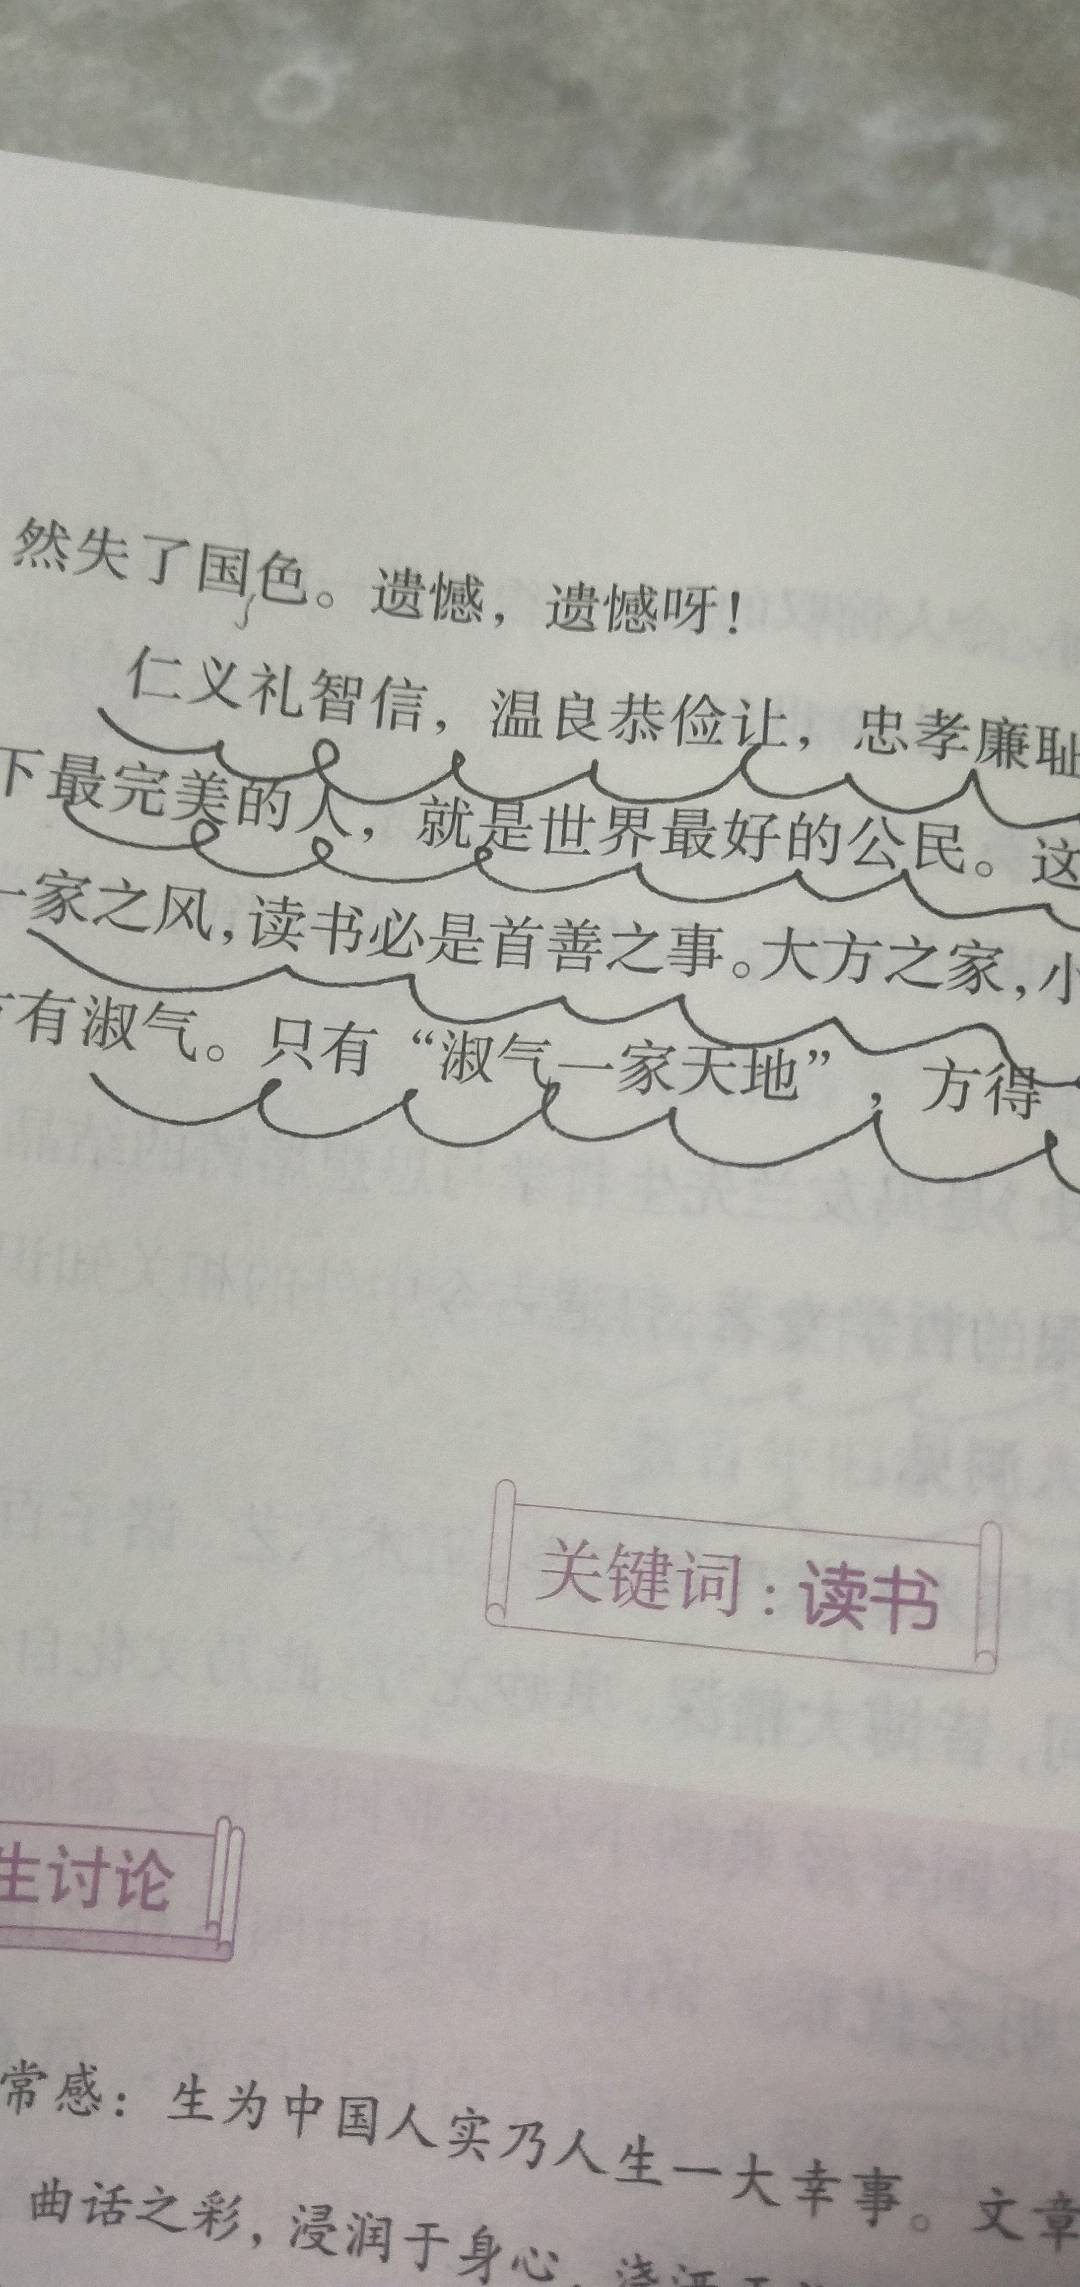 然失了国色。遗憾，遗憾呀！
仁义礼智信，温良恭俭让，忠孝廉耻
下最完美的人，就是世界最好的公民。这
一家之风，读书必是首善之事。大方之家，小
有淑气。只有“淑气一家天地”，方得一
关键词：读书
生讨论
常感：生为中国人实乃人生一大幸事。文章
曲话之彩，浸润于身心，浇